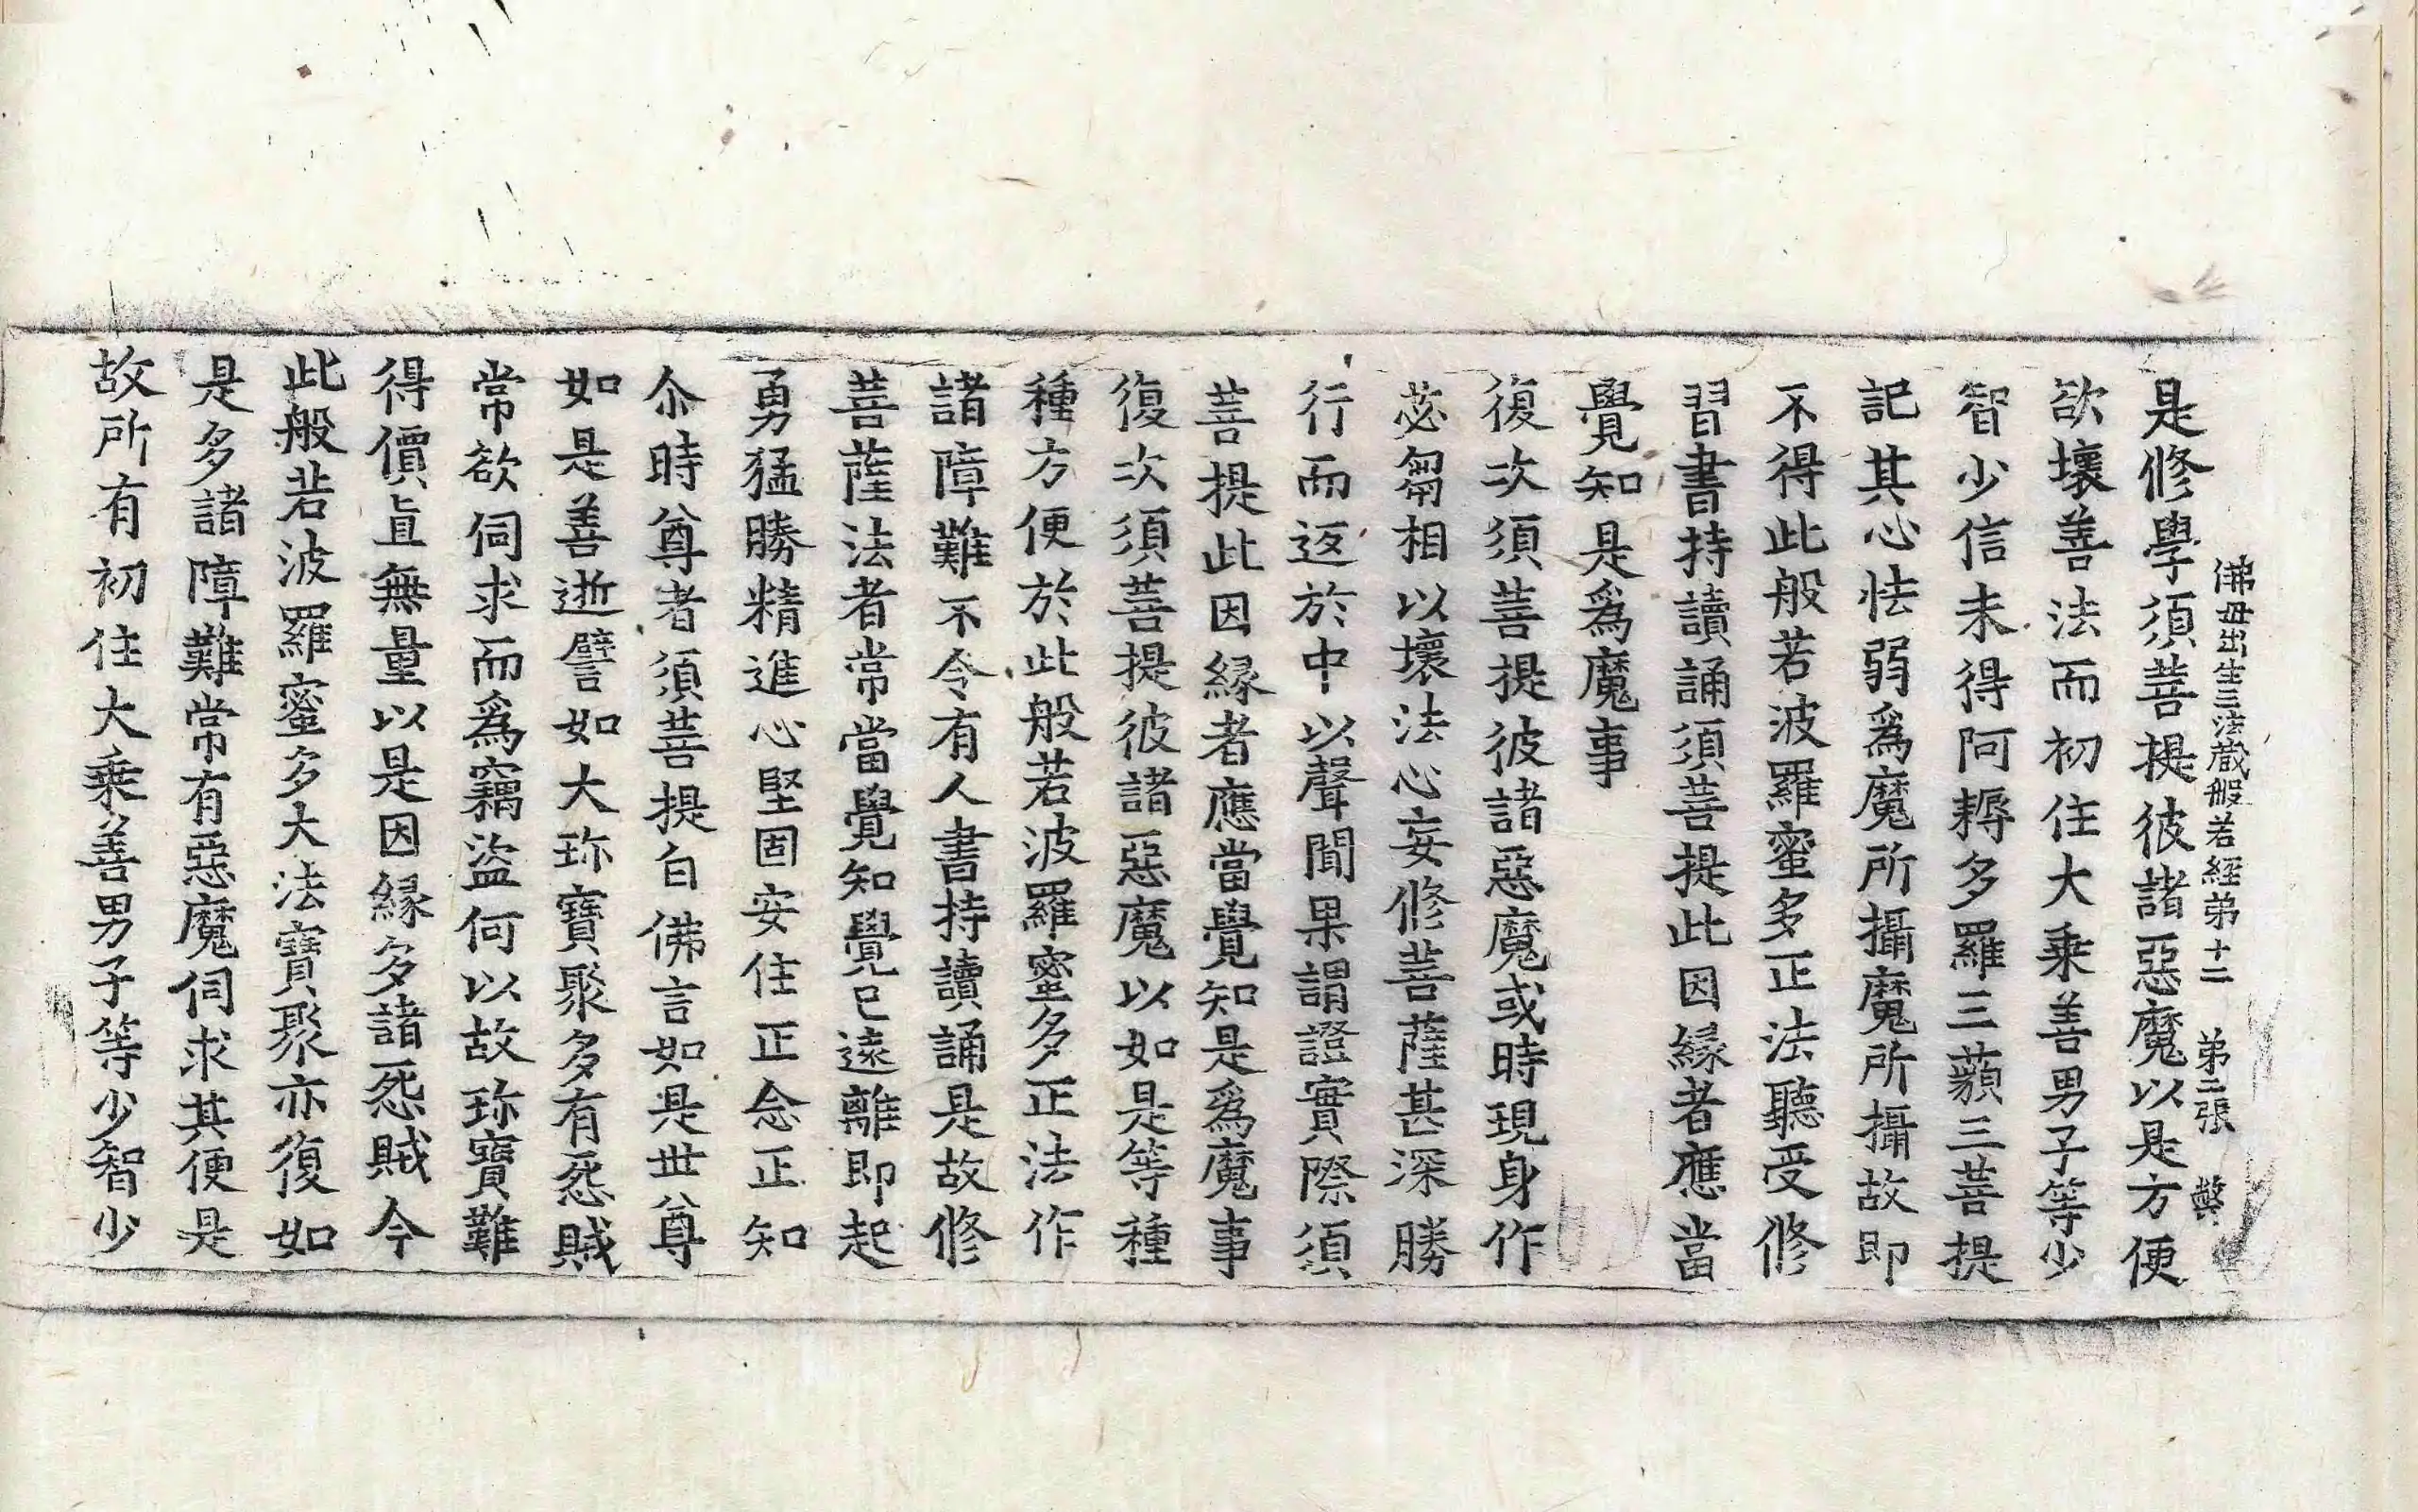 佛母出生三法藏般若經第十二 第二張 縏
是修學須菩提彼諸惡魔以是方便
欲壞善法而初住大乘善男子等少
智少信未得阿耨多羅三藐三菩提
記其心怯弱爲魔所攝魔所攝故即
不得此般若波羅蜜多正法聽受修
習書持讀誦須菩提此因緣者應當
覺知是爲魔事
復次須菩提彼諸惡魔或時現身作
苾芻相以壞法心妄修菩薩甚深勝
行而返於中以聲聞果謂證實際須
菩提此因緣者應當覺知是爲魔事
復次須菩提彼諸惡魔以如是等種
種方便於此般若波羅蜜多正法作
諸障難不令有人書持讀誦是故修
菩薩法者常當覺知覺已遠離即起
勇猛勝精進心堅固安住正念正知
尒時尊者須菩提白佛言如是世尊
如是善逝譬如大珎寶聚多有怨賊
常欲伺求而爲竊盜何以故珎寶難
得價直無量以是因緣多諸怨賊今
此般若波羅蜜多大法寶聚亦復如
是多諸障難常有惡魔伺求其便是
故所有初住大乘善男子等少智少